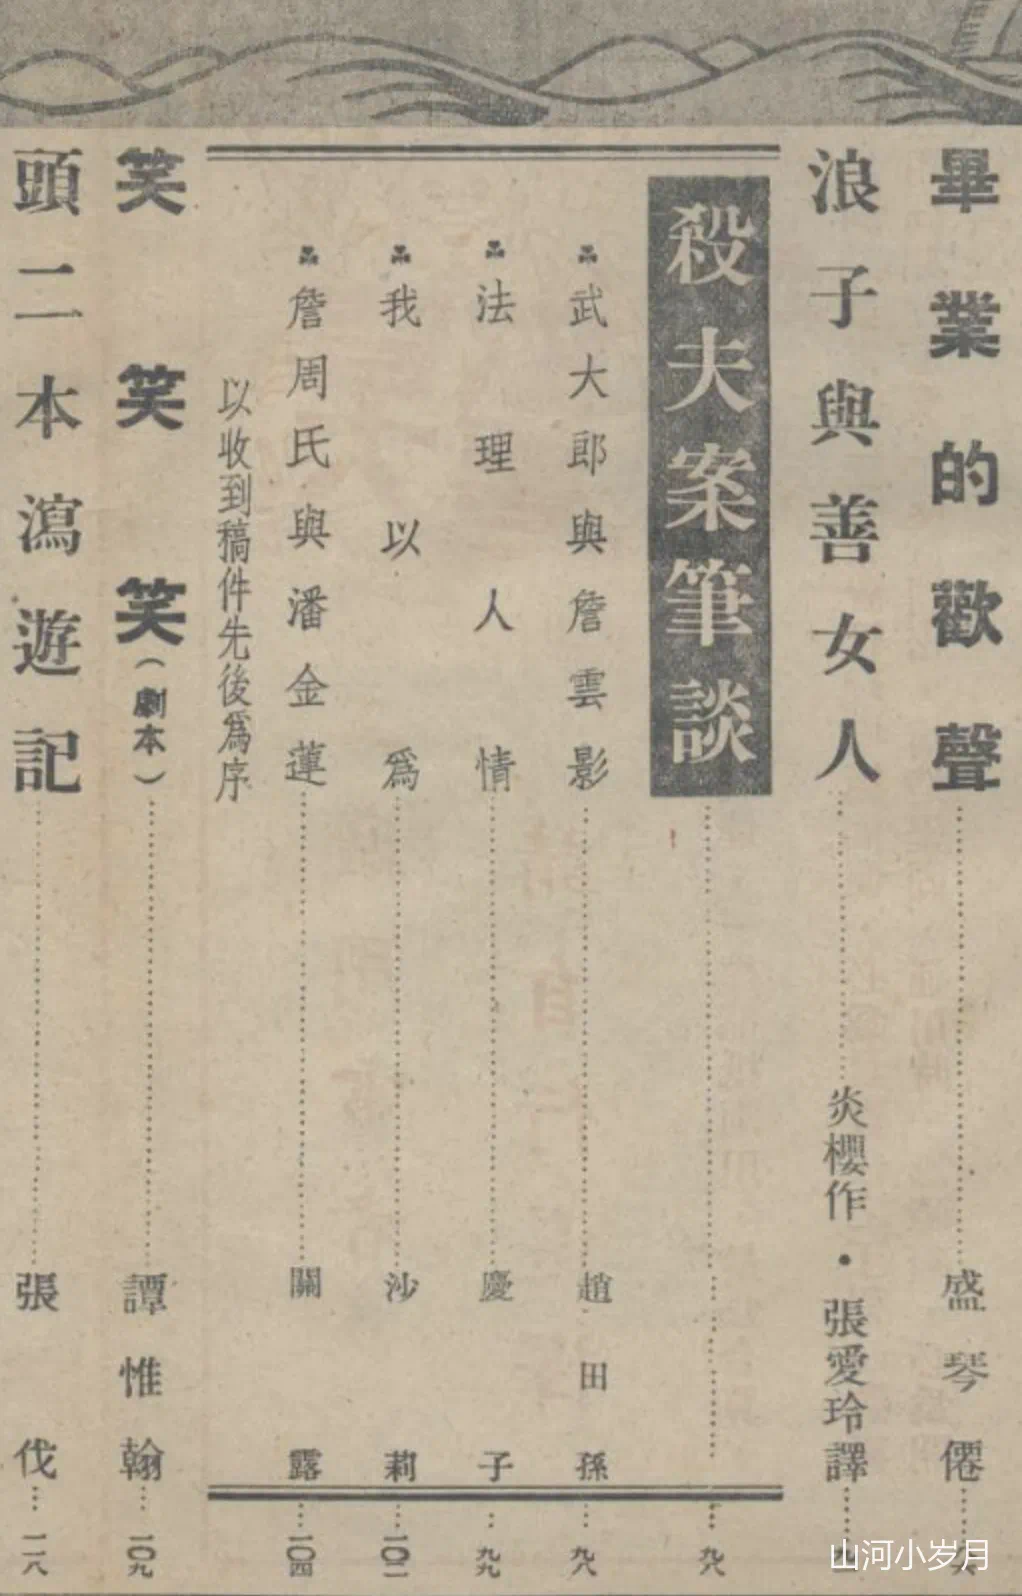 畢業的歡聲……盛琴僊……
浪子與善女人……炎櫻作・張愛玲譯……
殺夫案筆談……九八
武大郎與詹雲影……趙田孫……九八
法理人情……慶子……九九
我以為……沙莉……一〇二
詹周氏與潘金蓮……關露……一〇四
以收到稿件先後為序
笑笑笑（劇本）……譚惟翰……一〇九
頭二本瀉遊記……張伐……一一八
山河小岁月